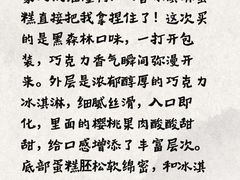 糕直接把我拿捏住了！这次买
的是黑森林口味，一打开包
装，巧克力香气瞬间弥漫开
来。外层是浓郁醇厚的巧克力
冰淇淋，细腻丝滑，入口即
化，里面的樱桃果肉酸酸甜
甜，给口感增添了丰富层次。
底部蛋糕胚松软绵密，和冰淇